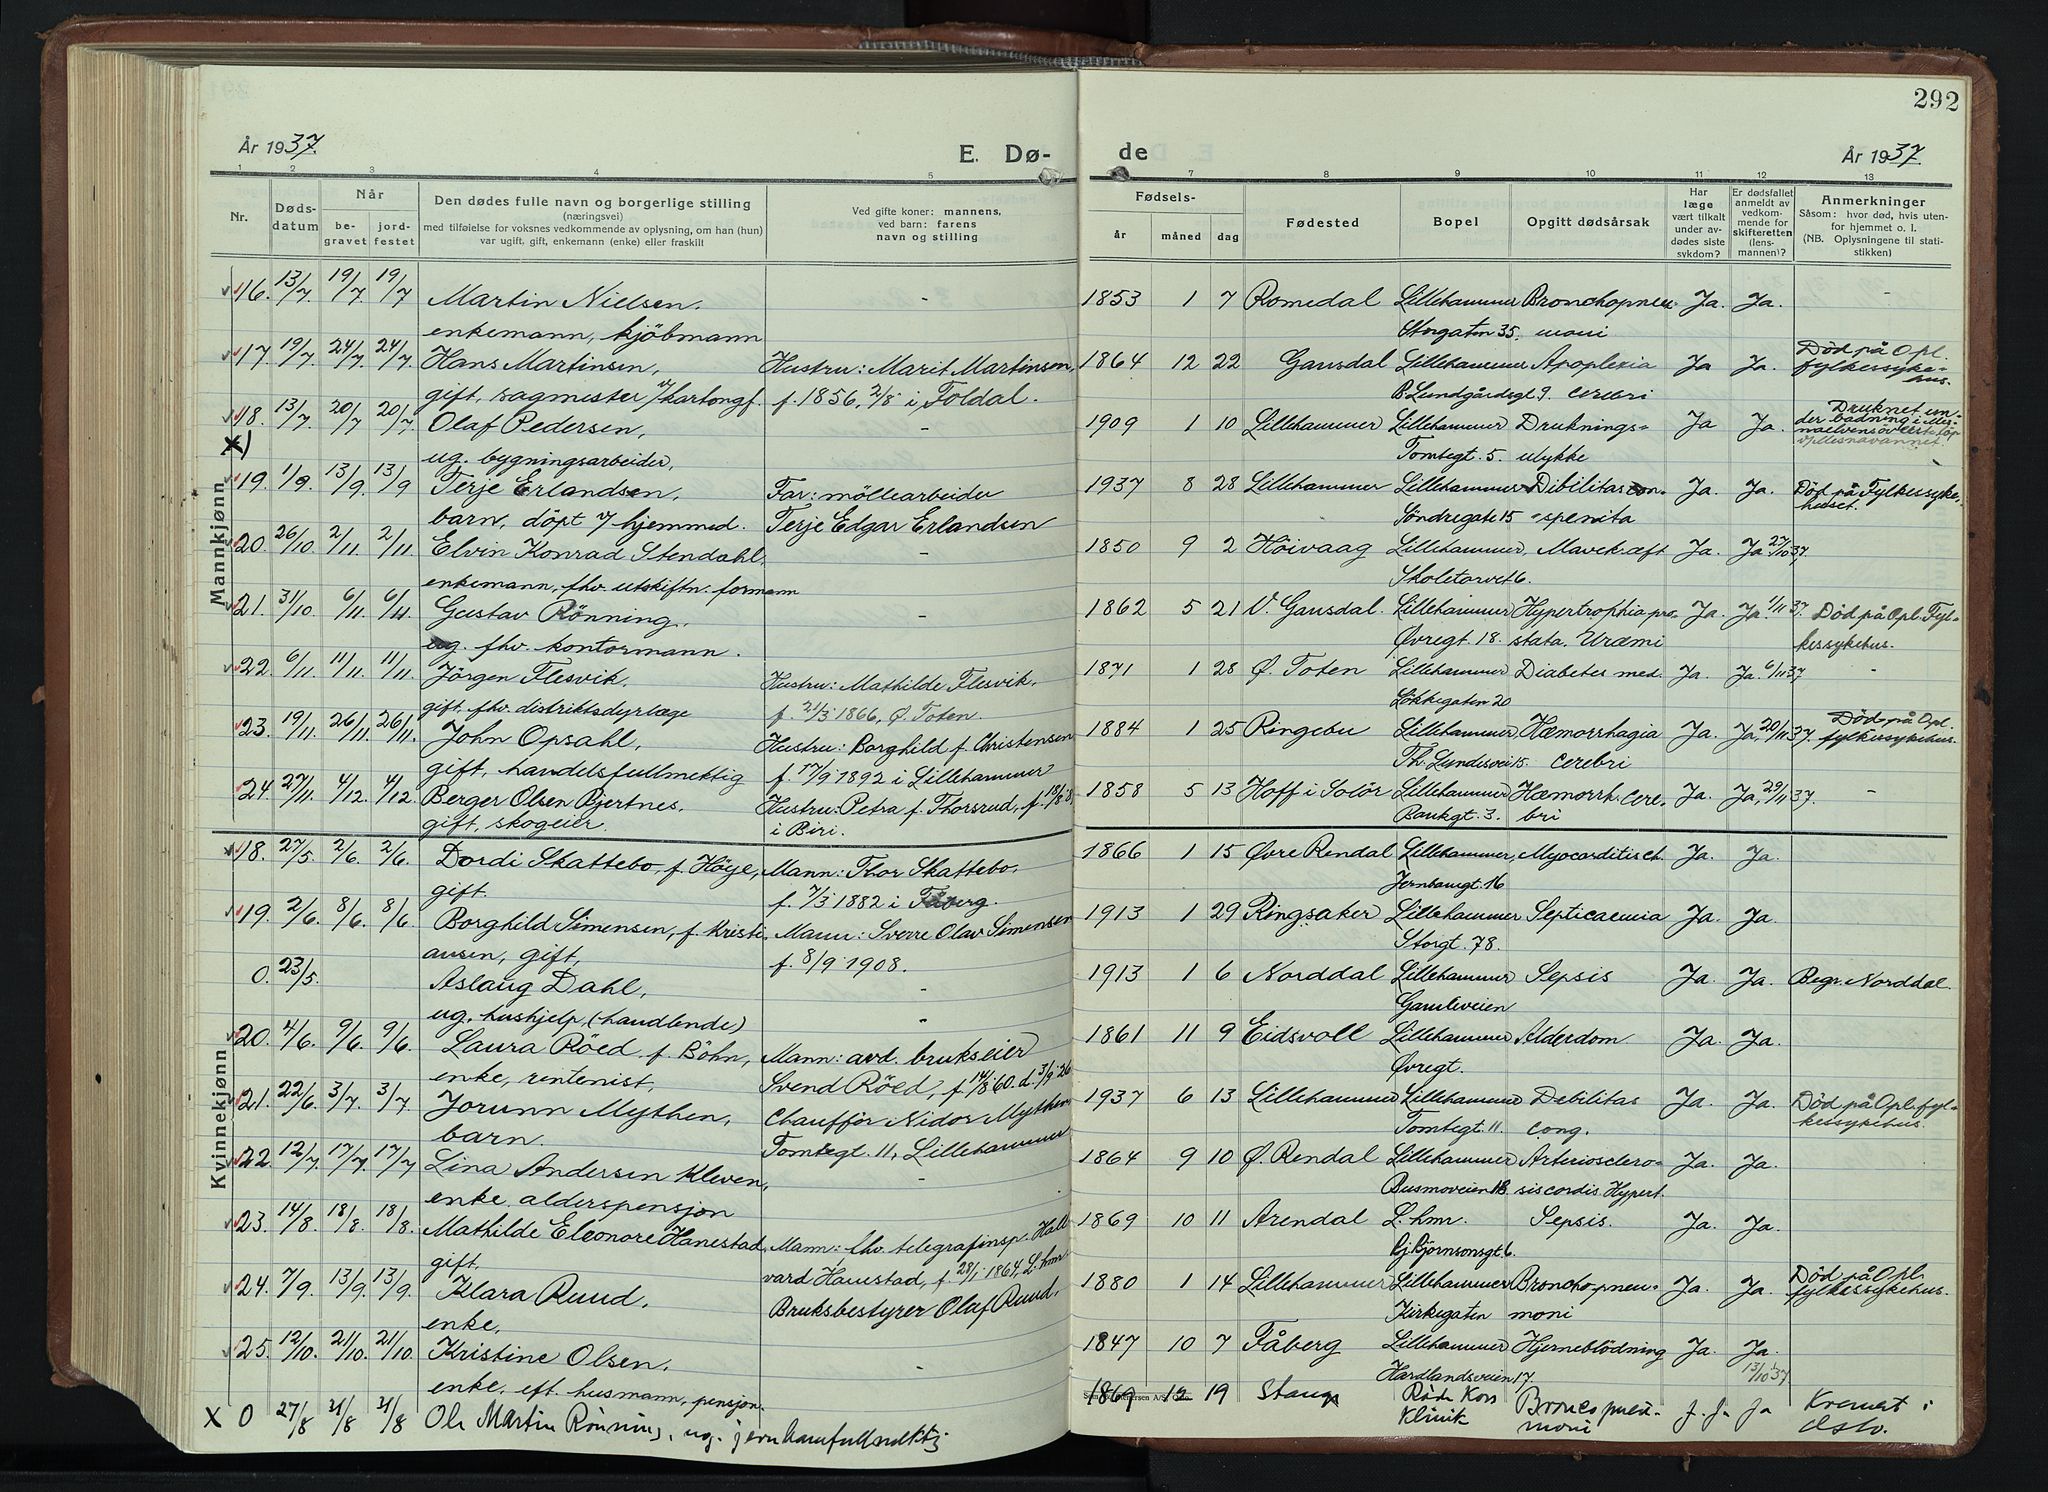 292
År 1937.
E. Dø-
de
År 1937
1 2 3 4 5 7 8 9 10 11 12 13
Nr.
Døds-
datum
Når
be-
gravet
jord-
festet
Den dødes fulle navn og borgerlige stilling
(næringsvei)
med tilføielse for voksnes vedkommende av oplysning, om han (hun)
var ugift, gift, enkemann (enke) eller fraskilt
Ved gifte koner: mannens,
ved barn: farens
navn og stilling
Fødsels-
år måned dag
Fødested
Bopel
Opgitt dødsårsak
Har
læge
vært tilkalt
under av-
dødes siste
sykdom?
Er dødsfallet
anmeldt av
vedkom-
mende for
skifteretten
(lens-
mannen)?
Anmerkninger
Såsom: hvor død, hvis uten-
for hjemmet o. l.
(NB. Oplysningene til stati-
stikken)
Mannkjønn
16. 13/7 19/7 19/7 Martin Nielsen. - 1853 1 7 Romedal Lillehammer Bronchopneu- Ja. Ja. -
enkemann, kjöbmann Storgaten 35. moni
17. 19/7 24/7 24/7 Hans Martinsen, Hustru: Marit Martinsen, 1864 12 22 Gausdal Lillehammer Apoplexia Ja Ja. Död på Opl.
fylkessyke-
hus.
gift, sagmester v/kartongf. f. 1856, 2/8 i Foldal. B. Lundgårdsgt 9. cerebri
18. 13/7 20/7 20/7 Olaf Pedersen, - 1909 1 10 Lillehammer Lillehammer Druknings- Ja Ja. Druknet un-
der badning i Mes-
naelvens överste löp
v/Mesnavannet.
x)
ug. bygningsarbeider, Tomtegt. 5. ulykke
19. 1/9 13/9 13/9 Terje Erlandsen, Far: möllearbeider 1937 8 28 Lillehammer Lillehammer Dibilitas con- Ja. Ja. Död på Fylkessyke-
huset.
barn, döpt v/ hjemmed. Terje Edgar Erlandsen Söndregate 15 spenita
20 26/10 2/11 2/11 Elvin Konrad Stendahl, - 1850 9 2 Höivaag Lillehammer Mavekræft Ja. Ja 27/10 37.
enkemann, fhv. utskiftn. formann Skoletorvet 6.
21. 31/10 6/11 6/11 Gustav Rönning, - 1862 5 21 V. Gausdal. Lillehammer Hypertrophia pro- Ja. Ja. 1/11 37. Död på Opl. Fyl-
kessykehus.
ug. fhv. kontormann. Øvregt. 18. stata. Uræmi
22. 6/11 11/11 11/11 Jörgen Flesvik. Hustru: Mathilde Flesvik, 1871 1 28 Ø. Toten Lillehammer Diabetes med. Ja. Ja. 6/11 37 -
gift, fhv. distriktsdyrlæge f. 21/3 1866, Ø. Toten. Lökkegaten 20
23. 19/11 26/11 26/11 John Opsahl, Hustru: Borghild f. Christensen 1884 1 25 Ringebu Lillehammer Hæmorrhagia Ja. Ja, 20/11 37. Död på Opl.
fylkessykehus.
gift, handelsfullmektig f. 17/9 1892 i Lillehammer Th. Lundesvei 15. cerebri
24. 27/11 4/12 4/12 Berger Olsen Bjertnes, Hustru: Petra f. Thorsrud, f. 18/8 1858 5 13 Hoff i Solör Lillehammer Hæmorrh. cere- Ja. Ja, 29/11 37. -
gift, skogeier. i Biri. Bankgt. 3. bri
Kvinnekjønn
18. 27/5 2/6. 2/6. Dordi Skattebo, f. Höye, Mann: Thor Skattebo, 1866 1 15 Øvre Rendal Lillehammer, Myocarditis ch. Ja. Ja.
gift. f. 7/3 1882 i Fåberg. Jernbanegt. 16
19. 2/6. 8/6. 8/6. Borghild Simensen, f. Kristi- Mann: Sverre Olav Simensen 1913 1 29 Ringsaker Lillehammer Septicaemia Ja. Ja.
ansen, gift, f. 8/9 1908. Storgt. 78.
0. 23/5. Aslaug Dahl, - 1913 1 6 Norddal Lillehammer Sepsis Ja. Ja. Begr. Norddal.
ug. hushjelp, (handlende) Gamleveien
20. 4/6. 9/6. 9/6. Laura Röed, f. Böhn, Mann: avd. brukseier 1861 11 9 Eidsvoll Lillehammer Alderdom. Ja. Ja.
enke, rentenist, Svend Röed, f. 14/8 60. d. 3/9 26 Øvregt.
21. 22/6. 3/7. 3/7. Jorunn Mythen, Chaufför Nidor Mythen 1937 6 13 Lillehammer Lillehammer Debilitas Ja. Ja. Död på Opl. fyl-
kessykehus.
barn. Tomtegt. 11, Lillehammer Tomtegt. 11. cong.
22. 12/7 17/7 17/7 Lina Andersen Kleven, - 1864 9 10 Ø. Rendal Lillehammer Arteriosclero- Ja. Ja.
enke, alderspensjon Busmoveien 18 sis cordis. Hypert.
23. 14/8. 18/8. 18/8. Mathilde Eleonore Hanestad, Mann: fhv. telegrafinsp. Hall- 1869 10 11 Arendal L.hmr. Sepsis. Ja. Ja.
gift, vard Hanestad, f. 28/1 1864, L.hmr. Bj. Björnsonsgt. 6.
24. 7/9. 13/9. 13/9. Klara Ruud, Bruksbestyrer Olaf Ruud, 1880 1 14 Lillehammer Lillehammer Bronchopneu- Ja. Ja. Död på Opl.
fylkessykehus.
enke, Kirkegaten moni
25. 12/10. 21/10. 21/10 Kristine Olsen, - 1847 10 7 Fåberg Lillehammer Hjerneblödning Ja. Ja.
13/10 37
enke, eft. husmann, pensjon. Hardlandsveien 17.
x 0 27/8 Ole Martin Rönning, ug. jernvarefullmektig 1869 12 19 Stange Röde Kors Broncopneu- J. Ja Kremert i
Klinik moni Oslo.